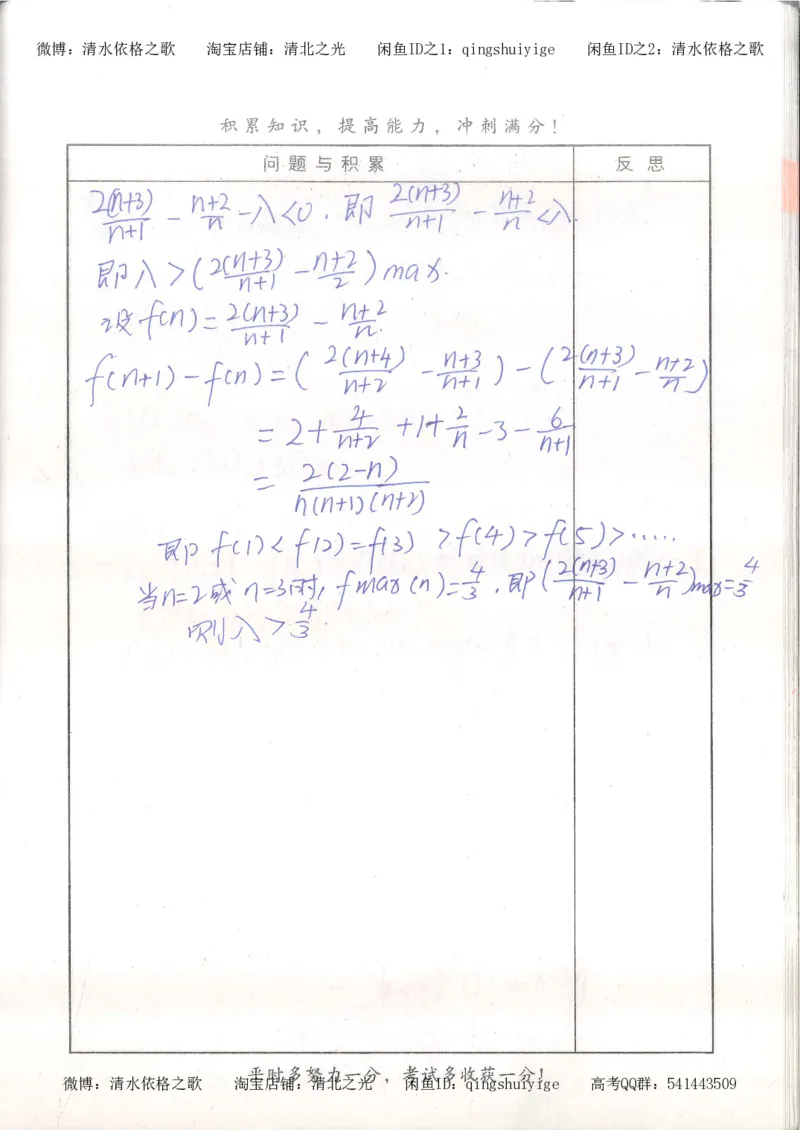 微博：清水依格之歌 淘宝店铺：清北之光 闲鱼ID之1：qingshuiyige 闲鱼ID之2：清水依格之歌
积累知识，提高能力，冲刺满分！
问题与积累 反思
2(n+3)/(n+1) - (n+2)/n - λ<0. 即 2(n+3)/(n+1) - (n+2)/n <λ.
即λ>(2(n+3)/(n+1) - (n+2)/2)max.
设f(n)=2(n+3)/(n+1) - (n+2)/n.
f(n+1)-f(n)=(2(n+4)/(n+2) - (n+3)/(n+1))-(2(n+3)/(n+1) - (n+2)/n)
=2+4/(n+2)+1+2/n-3-6/(n+1)
=2(2-n)/(n(n+1)(n+2))
即f(1)<f(2)=f(3)>f(4)>f(5)>……
当n=2或n=3时, fmax(n)=4/3. 即(2(n+3)/(n+1) - (n+2)/n)max=4/3
则λ>4/3.
平时多努力一分，考试多收获一分！
微博：清水依格之歌 淘宝店铺：清北之光 闲鱼ID：qingshuiyige 高考QQ群：541443509